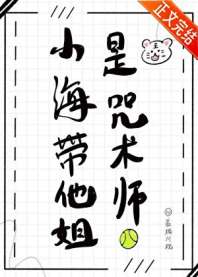 正文完结
是咒术师
小海带他姐